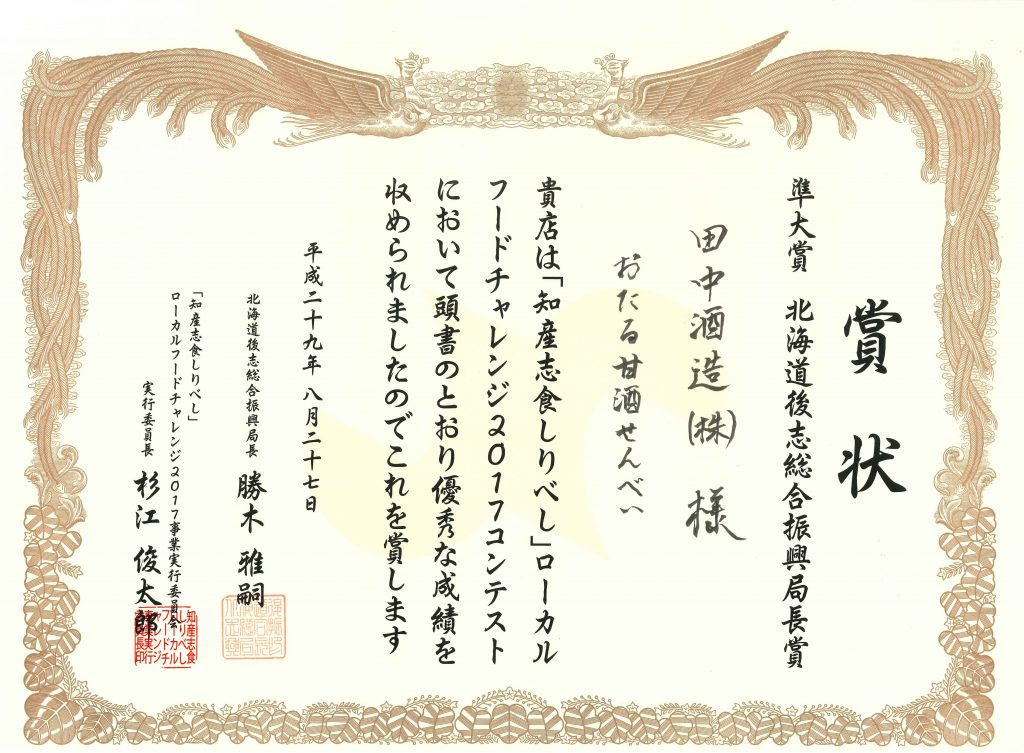 賞状
準大賞 北海道後志総合振興局長賞
田中酒造(株) 様
おたる甘酒せんべい
貴店は「知産志食しりべし」ローカル
フードチャレンジ2017コンテスト
において頭書のとおり優秀な成績を
収められましたのでこれを賞します
平成二十九年 八月二十七日
北海道後志総合振興局長 勝木 雅嗣
「知産志食しりべし」
ローカルフードチャレンジ2017事業実行委員会
実行委員長 杉江 俊太郎
知産志食
しりべし
ローカル
フードチ
ャレンジ
事業実行